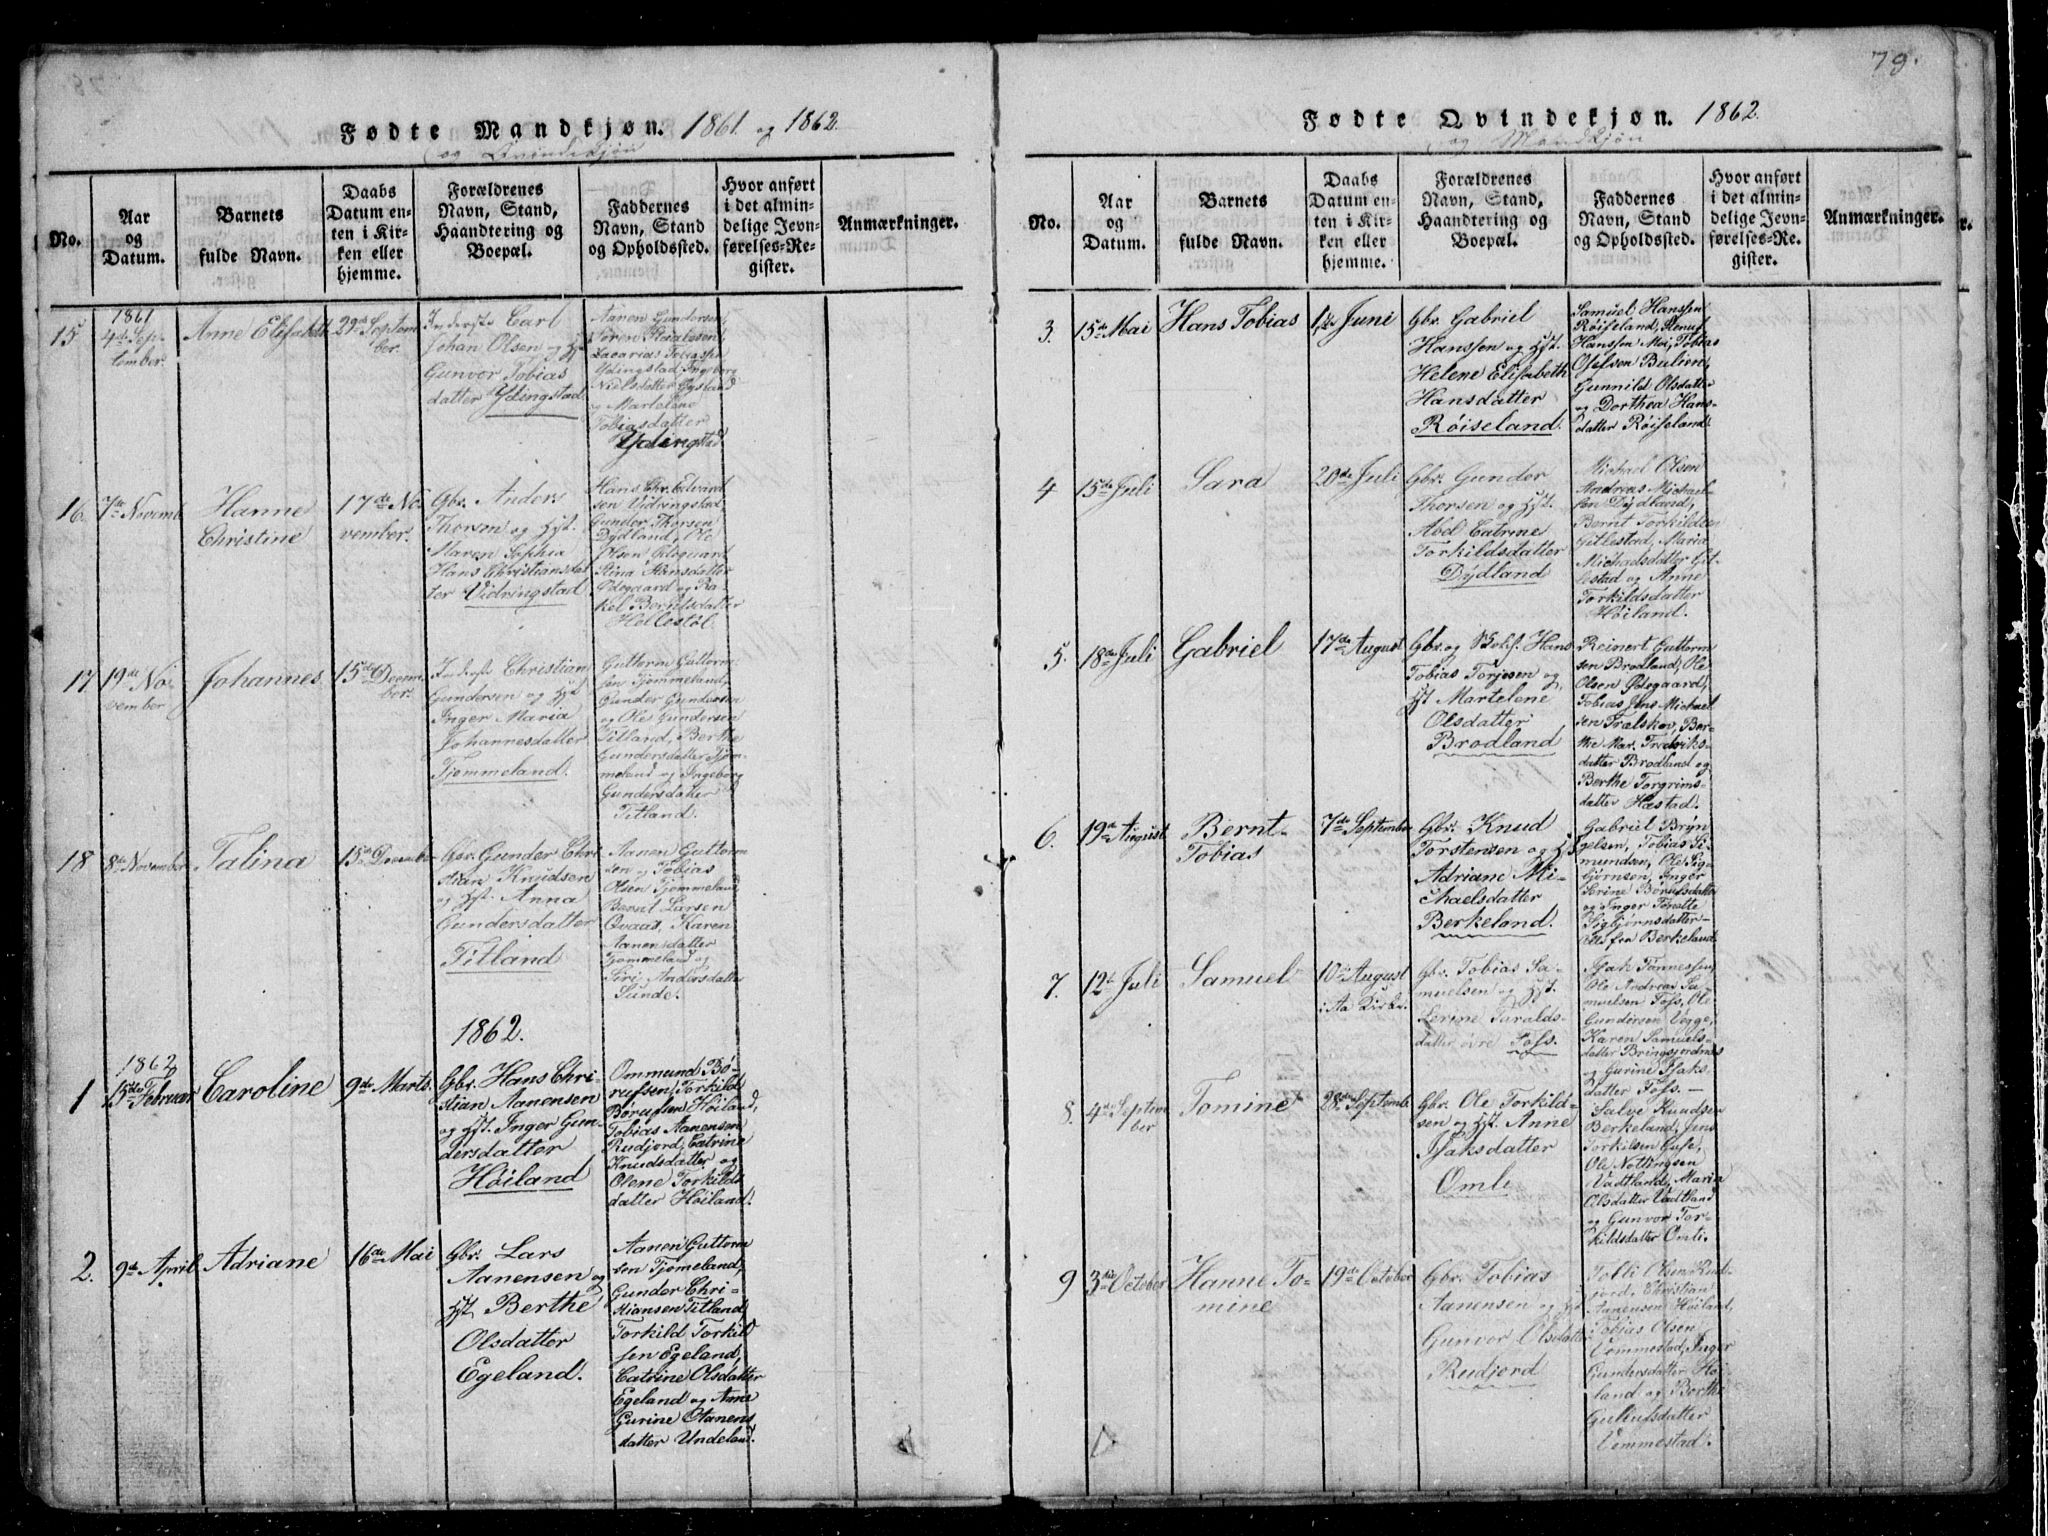 Fødte Mandkjøn. 1861 og 1862
og Qvindekjøn
No.
Aar og Datum.
Barnets fulde Navn.
Daabs Datum enten i Kirken eller hjemme.
Forældrenes Navn, Stand, Haandtering og Boepæl.
Faddernes Navn, Stand og Opholdssted.
Hvor anført i det almindelige Jevnførelses-Register.
Anmærkninger.
15
1861
4de September
Anne Elisabeth
29de September.
Inderste Carl
Johan Olsen og Hst
Gunvor Tobias
datter Ydingstad
Aanen Gundersen
Søren
Zacarias Tobiassen
Ydingstad, Ingeborg
Nielsdatter
og Martelene
Tobiasdatter
Ydingstad
16.
7de Novemb
Hanne
Christine
17de No
vember.
Gbr. Anders
Thorsen og Hst.
Maren Sophia
Hans Christiansdat
ter Vidringstad
Hans Chr. Edvard
sen Vidringstad
Gunder Thorsen
Dydland, Ole
Olsen Ødegaard
Stina Hansdatter
Ødegaard og Ra
kel Berntsdatter
Hellestøl
17
19de No
vember
Johannes
15de Decem
ber.
Inderste Christian
Gundersen og Hst
Inger Maria
Johannesdatter
Tjømmeland.
Guttorm Guttorm
sen Tjømmeland,
Gunder Gundersen
og Ole Gundersen
Titland, Berthe
Gundersdatter Tjøm
meland og Ingeborg
Gundersdatter
Titland.
18
8de November
Talina
15de December
Gbr. Gunder Chri
stian Knudsen
og Hst. Anna
Gundersdatter
Titland
Aanen Guttorm
sen og Tobias
Olsen Tjømmeland
Bernt Larsen
Qvaas, Karen
Aanensdatter
Tjømmeland og
Siri Andersdatter
Sunde.
1862.
1
1862
15de Februar
Caroline
9de Marts.
Gbr. Hans Chri-
stian Aanensen
og Hst. Inger Gun
dersdatter
Høiland
Ommund Bø-
rufsen, Torkild
Børufsen Høiland,
Tobias Aanensen
Rudjord, Catrine
Knudsdatter og
Olene Torkilds
datter Høiland.
2.
9de April
Adriane
16de Mai
Gbr. Lars
Aanensen og
Hst Berthe
Olsdatter
Egeland.
Aanen Guttorm
sen Tjømeland,
Gunder Chri-
stiansen Titland
Torkild Torkild
sen Egeland,
Catrine Olsdatter
Egeland og Anne
Gurine Aanens
datter Undeland.
79.
Fødte Qvindekjøn. 1862.
og Mandkjøn
No.
Aar og Datum.
Barnets fulde Navn.
Daabs Datum enten i Kirken eller hjemme.
Forældrenes Navn, Stand, Haandtering og Boepæl.
Faddernes Navn, Stand og Opholdssted.
Hvor anført i det almindelige Jevnførelses-Register.
Anmærkninger.
3.
15de Mai
Hans Tobias
1ste Juni
Gbr. Gabriel
Hanssen og Hst.
Helene Elisabeth
Hansdatter
Røiseland.
Samuel Hanssen
Røiseland,
Hanssen Moi, Tobias
Olsen
Gunnild Olsdatter
og Dorthea Hans-
datter Røiseland.
4
15de Juli
Sara
20de Juli
Gbr. Gunder
Thorsen og Hst.
Abel Catrine
Torkildsdatter
Dydland
Michael Olsen
Andreas Michael
sen Dydland,
Bernt Torkildsen
Gitlestad, Maria
Michaelsdatter Git-
lestad og Anne
Torkildsdatter
Høiland.
5.
18de Juli
Gabriel
17de August
Gbr. og Hans
Tobias Torjesen og
Hst Martelene
Olsdatter
Brodland
Reinert Guttorm
sen Brodland, Ole
Olsen Ødegaard,
Tobias Jens Michael
sen Trælskov, Ber-
the Mar. Fredriks-
datter Brodland og
Berthe Torgrims-
datter Hæstad.
6.
19de August
Bernt
Tobias
7de September
Gbr. Knud
Torstensen og Hst
Adriane Mi-
chaelsdatter
Berkeland.
Gabriel Bryn
gelsen, Tobias Si-
mundsen, Ole Sig-
bjørnsen, Inger
Serine Børufsdatter
og Inger Tonette
Sigbjørnsdatter
Alle fra Berkeland
7.
12te Juli
Samuel
10de August
i Aa Kirke.
Gbr. Tobias Sa-
muelsen og Hst.
Serine Taralds-
datter øvre Foss.
Isak Tønnessen,
Ole Andreas Sa-
muelsen Foss, Ole
Gundersen Vegge,
Karen Samuels-
datter Bringsjordnes
og Gurine Isaks-
datter Foss.
8.
4de Septem
ber
Tomine
28de Septemb.
Gbr. Ole Torkild-
sen og Hst. Anne
Isaksdatter
Omli
Salve Knudsen
Berkeland, Jens
Torkilsen
Ole Nottingsen
Vadtland, Maria
Olsdatter Vadtland
og Gunvor Tor-
kildsdatter Omli.
9
3die October
Hanne To-
mine
19de October
Gbr. Tobias
Aanensen og Hst
Gunvor Olsdatter
Rudjord
Tolli Olsen Rud-
jord, Christian
Aanensen Høiland,
Tobias Olsen
Vemmestad, Inger
Gundersdatter Høi-
land og Berthe
datter
Vemmestad.